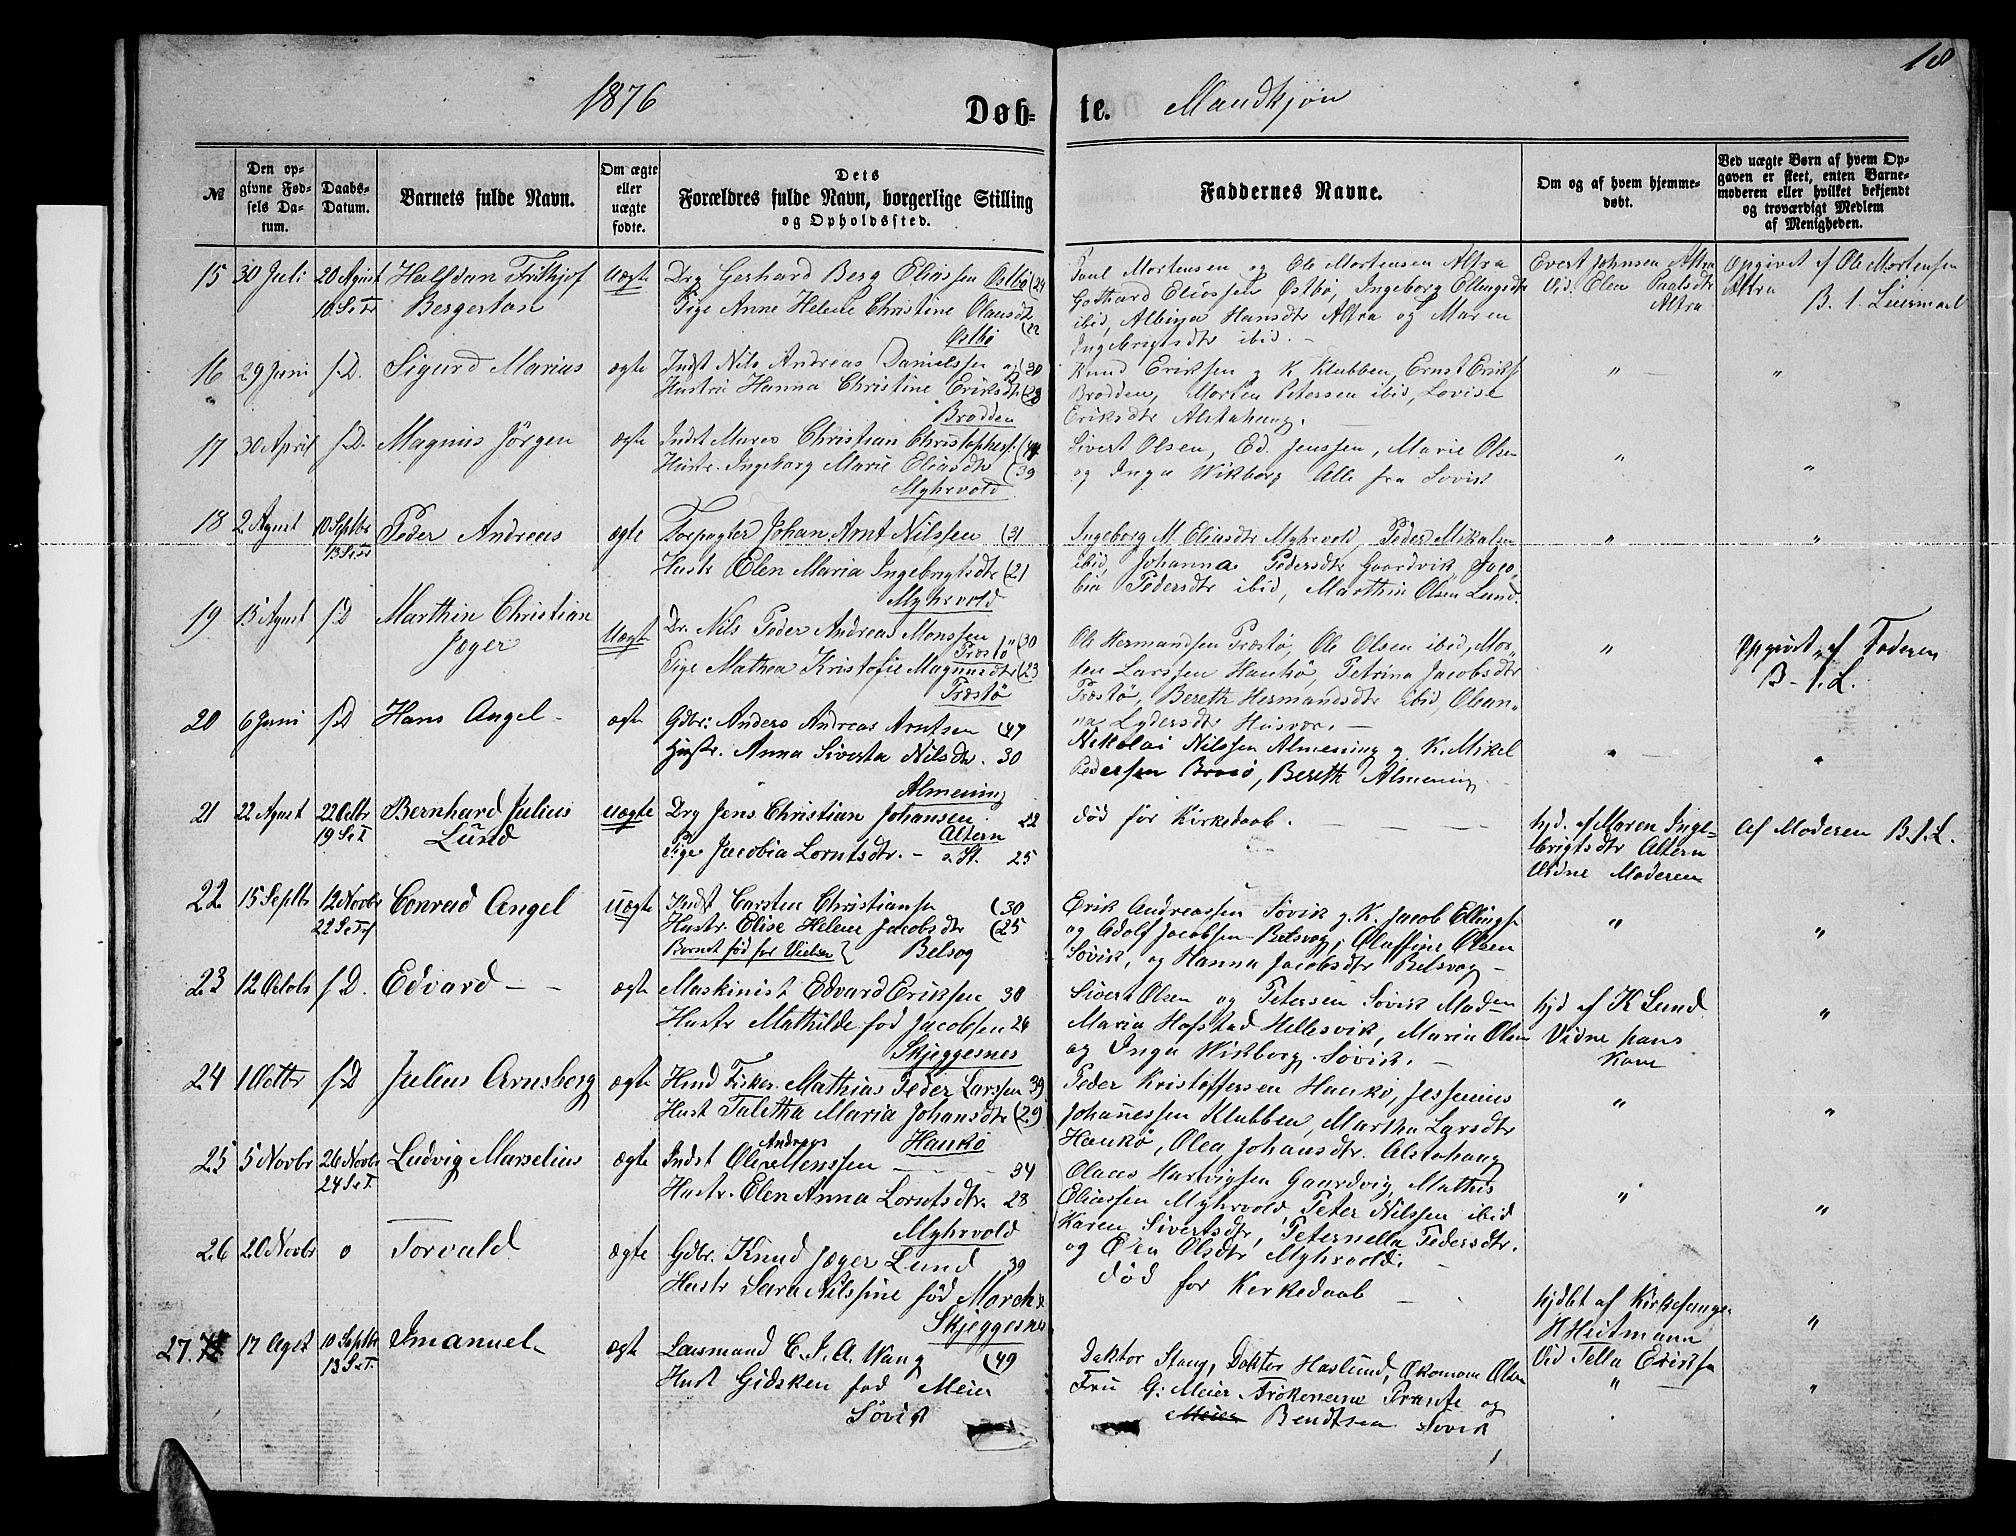 18
1876
Døb-
te.
Mandkjøn
№
Den op-
givne Fød-
sels Da-
tum.
Daabs-
Datum.
Barnets fulde Navn.
Om ægte
eller
uægte
fødte.
Dets
Forældres fulde Navn, borgerlige Stilling
og Opholdssted.
Faddernes Navne.
Om og af hvem hjemme-
døbt.
Ved uægte Børn af hvem Op-
gaven er skeet, enten Barne-
moderen eller hvilket bekjendt
og troværdigt Medlem
af Menigheden.
15 30 Juli 20 Agust Halfdan Frithjof Uægte Drg Gerhard Berg Eliassen Østbø (24
10 S. e Tr Bergerton Pige Anne Helene Christine Olausdtr
(22
Østbø
Paul Mortensen og Ole Mortensen Altra
Gothard Eliassen Østbø, Ingeborg Ellingsdtr
ibid, Albine Hansdtr Altra og Maren
Ingebrigtsdtr ibid. —
Evert Johnsen Altra
Vid. Elen Paalsdtr
Altra
Opgivet af Ole Mortensen
Altra
B. 1. Leiermaal
16 29 Juni f. D. Sigurd Marius ægte Indst Nils Andreas Danielssen og (30
" Hustru Hanna Christine Eriksdtr (28
Brodden
Knud Eriksen g K Klubben, Ernst Eriks
Brodden, Morten Petersen ibid, Lovise
Eriksdtr Alstahaug. —
" — "
17 30 April f. D. Magnus Jörgen ægte Indst Mares Christian Christophers. (44
Hustr. Ingeborg Marie Eliasdtr (39
Myhrvold
Sivert Olsen, Ed. Jenssen, Marie Olsen
og Inga Wikborg Alle fra Søvik
" "
18 2 Agust 10 Septbr Peder Andreas ægte Forpagter Johan Arnt Nilssen (31
13 S e Tr Hustr Elen Maria Ingebrigtsdtr (21
Myhrvold
Ingeborg M. Eliasdtr Myhrvold, Peder Mikalsen
ibid, Johanna Pedersdtr Gaardvik Jaco-
bia Pedersdtr ibid, Marthin Olsen Lund.
" "
19 13 Agust f. D Marthin Christian Uægte Dr. Nils Peder Andreas Monssen (30
Jæger Præstø
Pige Mathea Kristofie Magnusdtr (23
Præstø
Ole Hermandsen Præstø, Ole Olsen ibid, Mor-
ten Larssen Haukø, Petrina Jacobsdtr
Præstø, Bereth Hermandsdtr ibid, Olean-
na Lydersdtr Husvær. —
" Opgivet af Faderen
B. 1. L.
20 6 Juni f. D Hans Angel - ægte Gdbr. Anders Andreas Arntsen (47
Hustr. Anna Siverta Nilsdtr. 30
Almening
Nikolai Nilssen Almening g K. Mikel
Pedersen Brasø, Bereth Almening
" — "
21 22 Agust 22 Octbr Bernhard Julius Uægte Drg Jens Christian Johansen 22
19 S e T Lund Altern
Pige Jacobia Lorntsdtr. — s. St. 25
død for Kirkedaab. — — —
hjd. af Maren Inge-
brigtsdtr Altern
Vidne Moderen
Af Moderen B. 1. L.
22 15 Septbr 12 Novbr Conrad Angel Uægte Indst Carsten Christians (30
22 S e Tr Hustr. Elise Helene Jacobsdtr (25
Barnet fød før Vielsen Belsvog
Erik Andreassen Søvik g. K. Jacob Ellings
og Adolf Jacobsen Belsvog, Oluffine Olsen
Søvik, og Hanna Jacobsdtr Belsvog —
" "
23 12 Octob f. D. Edvard — — ægte Maskinist Edvard Eriksen 30
Hustr Mathilde fød Jacobsen 26
Skjeggesnes
Sivert Olsen og Petersen Søvik Madm
Maria Hofstad Hellesvik, Maria Olsen
og Inga Wikborg Søvik. —
hjd af K Lund
Vidne hans
Kone
"
24 1 Octbr f. D Julius Arnsberg ægte Hmd Fisker. Mathias Peder Larssen 39
Hust Taletha Maria Johansdtr (29)
Haukø
Peder Kristoffersen Haukø, Jessenius
Johanessen Klubben, Martha Larsdtr
Haukø, Olea Johansdtr. Alstahaug
" "
25 5 Novbr 26 Novbr Ludvig Marselius ægte Indst Ole Andreas Monssen — — 34
24 S e T. Hustr. Elen Anna Lorntsdtr. 28
Myhrvold
Olaus Hartvigsen Gaardvig, Mathis
Eliassen Myhrvold Peter Nilssen ibid
Karen Sivertsdtr, Peternella Pedersdtr.
og Elen Olsdtr Myhrvold. —
" "
26 20 Novbr o Torvald ægte Gdbr. Knud Jæger Lund 39
Hustr Sara Nilssine fød March
Skjeggesnes
død for Kirkedaab —
hjdbt af Kirkesanger
H Heitmann
Vid Tella Eriks
"
27. 17 Agst 10 Septbr Imanuel ægte Lensmand C. J. A. Wang (49
13 S e T. Hust Gidsken fød Meier
Søvik
Doktor Stang, Doktor Haslund, Økonom Olsen
Fru G. Meier Frøknerne Brandt og
Meier Bendtsen Søvik
" — "